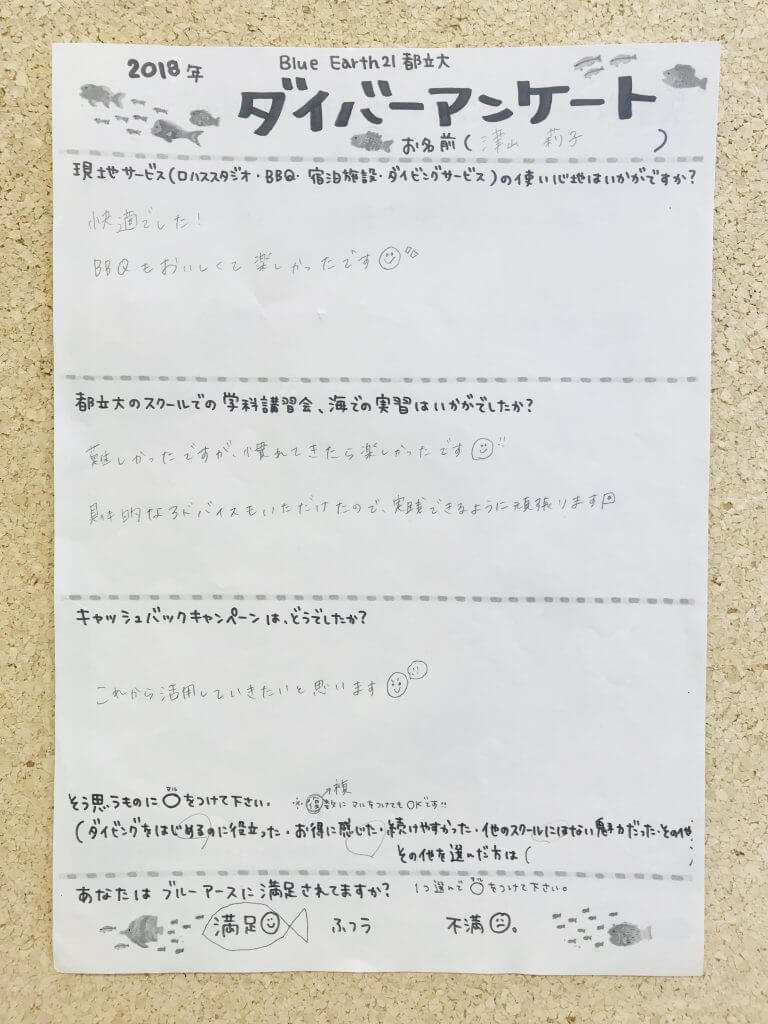 2018年
Blue Earth21 都立大
ダイバーアンケート
お名前(津山 莉子)
現地サービス(ロハススタジオ・BBQ・宿泊施設・ダイビングサービス)の使い心地はいかがですか?
快適でした!
BBQもおいしくて楽しかったです
都立大のスクールでの学科講習会、海での実習はいかがでしたか?
難しかったですが、慣れてきたら楽しかったです
具体的なアドバイスもいただけたので、実践できるように頑張ります
キャッシュバックキャンペーンは、どうでしたか?
これから活用していきたいと思います
複
そう思うものに○をつけて下さい。 ※ 数にマルをつけてもOKです!!
マル
(ダイビングをはじめるのに役立った・お得に感じた・続けやすかった・他のスクールにはない魅力だった・その他
その他を選んだ方は( )
あなたはブルーアースに満足されてますか? 1つ選んで○をつけて下さい。
マル
満足 ふつう 不満。